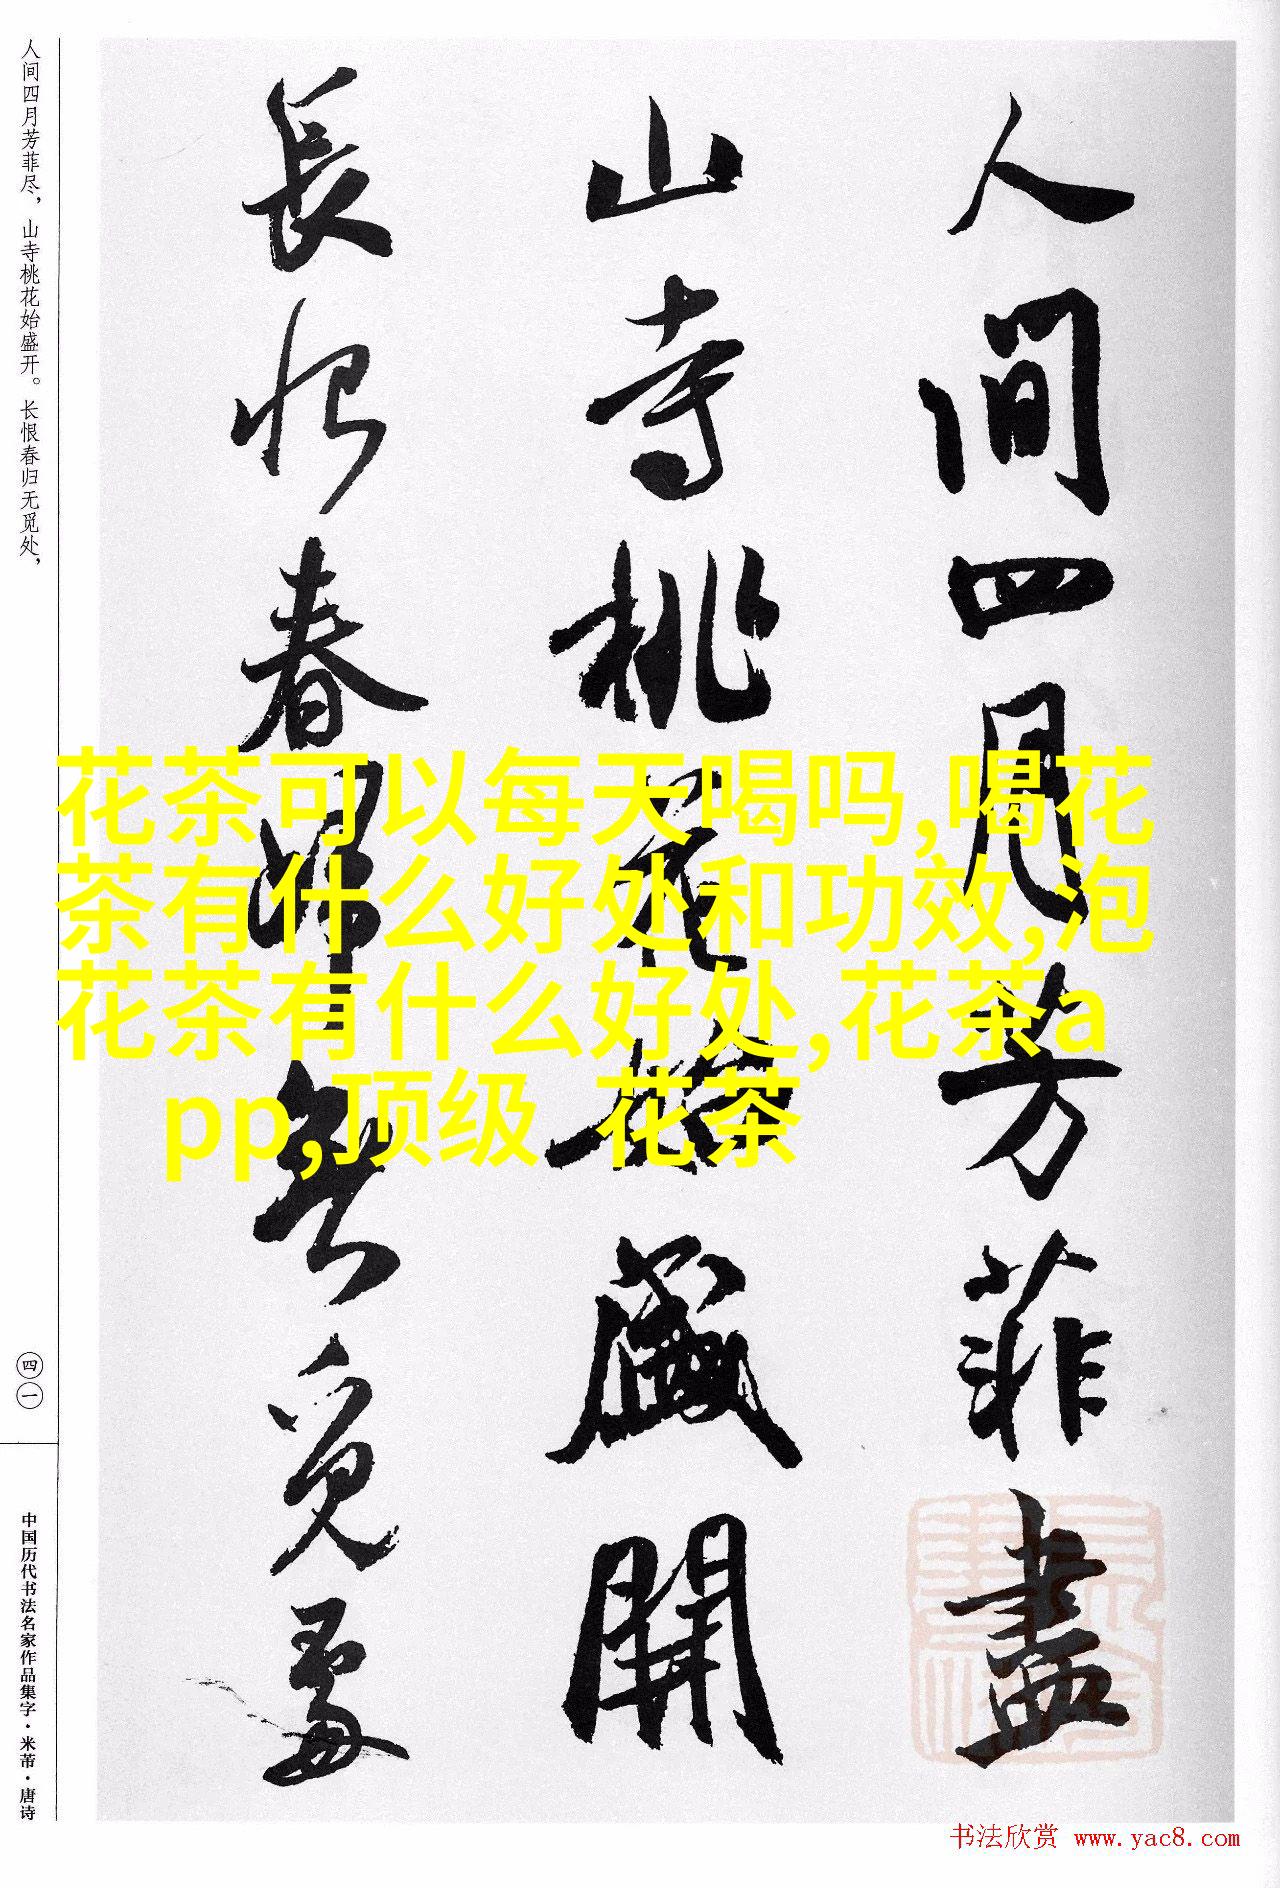 人间四月芳菲尽，山寺桃花始盛开。长恨春归无觅处，
人間四月芳菲盡
山寺桃花始盛開
長恨春歸無覓處
花茶可以每天喝吗,喝花
茶有什么好处和功效,泡
花茶有什么好处,花茶a
pp,顶级 花茶
四一
中国历代书法名家作品集字·米芾·唐诗
书法欣赏 www.yac8.com